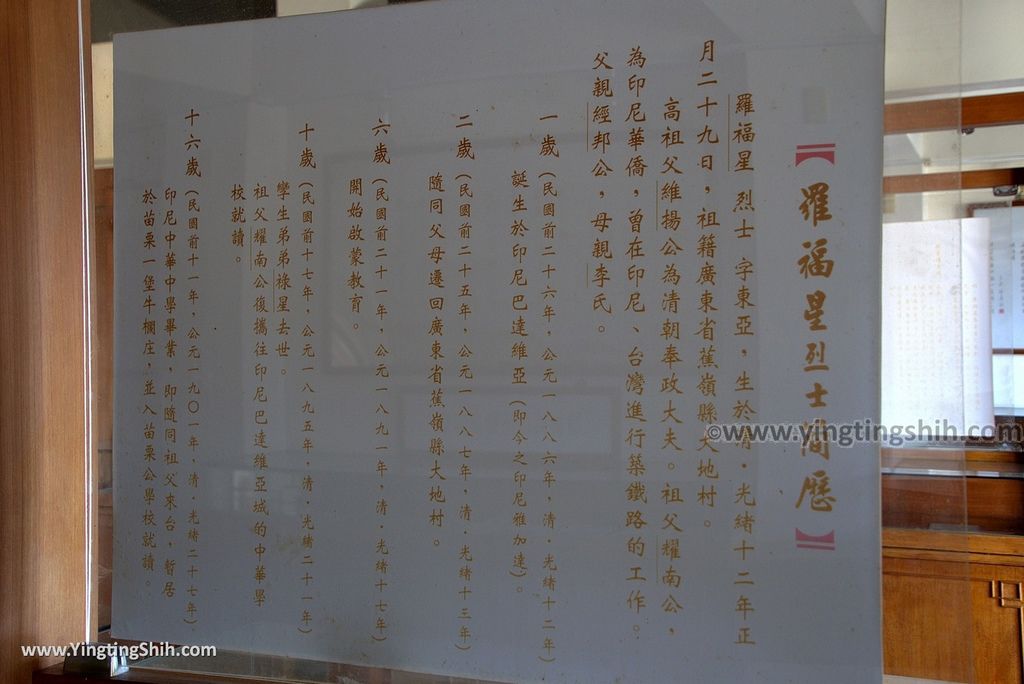 【羅福星烈士簡歷】
羅福星 烈士 字東亞，生於清．光緒十二年正
月二十九日，祖籍廣東省蕉嶺縣大地村。
高祖父維揚公為清朝奉政大夫。祖父耀南公，
為印尼華僑，曾在印尼、台灣進行築鐵路的工作。
父親經邦公，母親李氏。
一歲（民國前二十六年，公元一八八六年，清．光緒十二年）
誕生於印尼巴達維亞（即今之印尼雅加達）。
二歲（民國前二十五年，公元一八八七年，清．光緒十三年）
隨同父母遷回廣東省蕉嶺縣大地村。
六歲（民國前二十一年，公元一八九一年，清．光緒十七年）
開始啟蒙教育。
十歲（民國前十七年，公元一八九五年，清．光緒二十一年）
孿生弟弟祿星去世。
祖父耀南公復攜往印尼巴達維亞城的中華學
校就讀。
十六歲（民國前十一年，公元一九〇一年，清．光緒二十七年）
印尼中華中學畢業，即隨同祖父來台，暫居
於苗栗一堡牛欄庄，並入苗栗公學校就讀。
©www.YingtingShih.com
www.YingtingShih.com